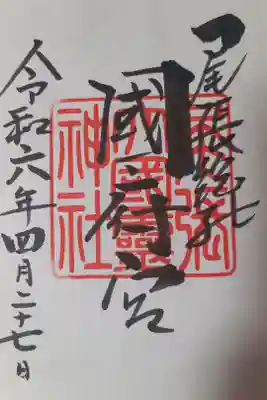 尾張総社
國府宮
令和六年四月二十七日
尾張
大國霊
神社